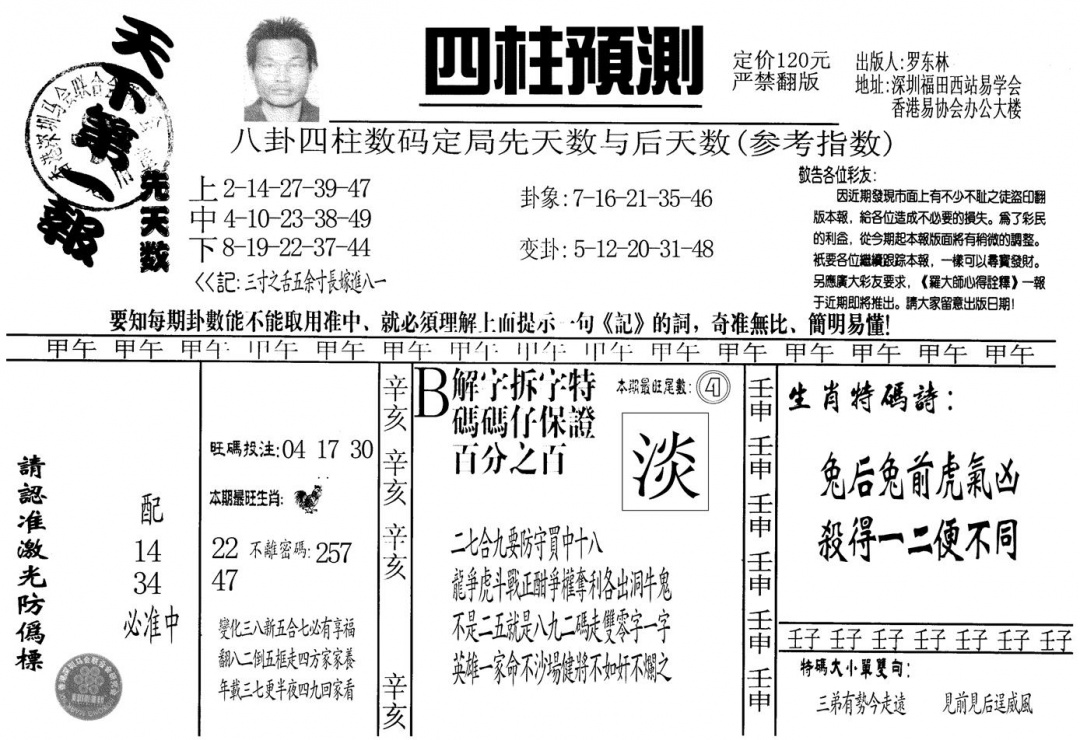 天下第一報
四柱預測
定价120元
严禁翻版
出版人:罗东林
地址:深圳福田西站易学会
香港易协会办公大楼
八卦四柱数码定局先天数与后天数(参考指数)
先天数
上2-14-27-39-47
中4-10-23-38-49
下8-19-22-37-44
<<記:三寸之舌五余寸長嫁進八一
卦象:7-16-21-35-46
变卦:5-12-20-31-48
敬告各位彩友:
因近期發現市面上有不少不耻之徒盜印翻
版本報，給各位造成不必要的損失。爲了彩民
的利益，從今期起本報版面將有稍微的調整。
衹要各位繼續跟踪本報，一樣可以尋寶發財。
另應廣大彩友要求，《羅大師心得詮釋》一報
于近期即將推出。請大家留意出版日期!
要知每期卦數能不能取用准中、就必須理解上面提示一句《記》的詞，奇准無比、簡明易懂!
甲午 甲午 甲午 甲午 甲午 甲午 甲午 甲午 甲午 甲午 甲午 甲午 甲午 甲午 甲午
請認准激光防僞標
配
14
34
必准中
旺碼投注:04 17 30
本期最旺生肖:
22 不離密碼:257
47
變化三八新五合七必有享福
翻八二倒五框走四方家家養
年载三七更半夜四九回家看
辛亥
辛亥
辛亥
辛亥
B解字拆字特
碼碼仔保證
百分之百
本期最旺尾數:④
淡
二七合九要防守買中十八
龍爭虎斗戰正酣爭權奪利各出洞牛鬼
不是二五就是八九二碼走雙零字一字
英雄一家命不沙場健將不如奸不爛之
壬申
壬申
壬申
壬申
壬申
壬申
生肖特碼詩:
兔后兔前虎氣凶
殺得一二便不同
壬子 壬子 壬子 壬子 壬子 壬子 壬子
特碼大小單雙句:
三弟有勢今走遠 見前見后逞威風